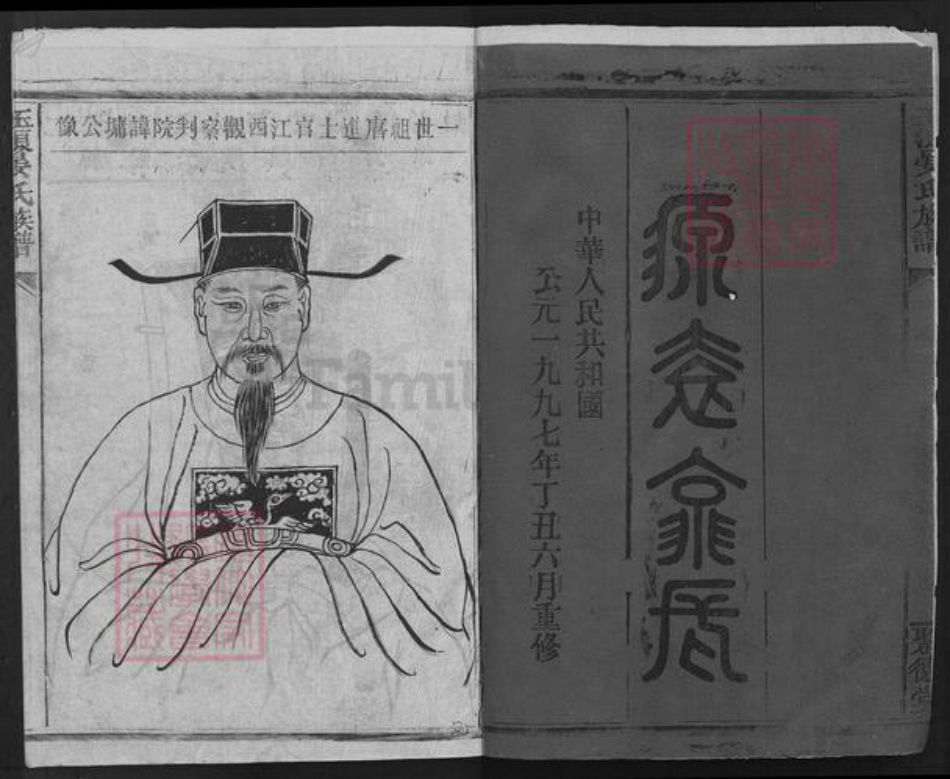 氏族譜
源遠流長
中華人民共和國
公元一九九七年丁丑六月重修
一世祖唐進士官江西觀察判院諱墉公像
晏氏族譜